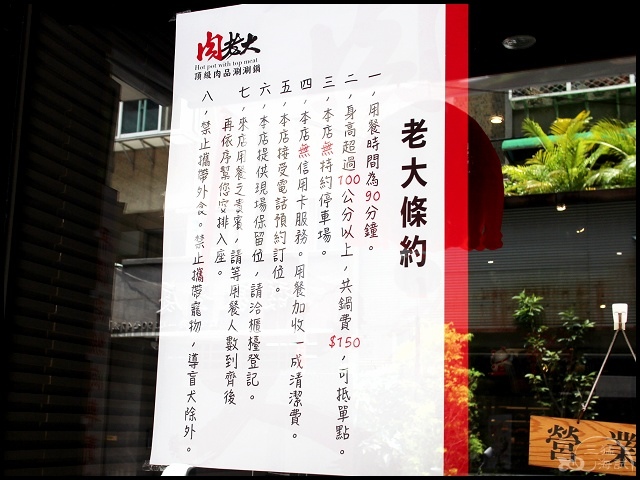 肉老大
Hot pot with top meat
頂級肉品涮涮鍋
老大條約
一，用餐時間為90分鐘。
二，身高超過100公分以上，共鍋費$150，可抵單點。
三，本店無特約停車場。
四，本店無信用卡服務。用餐加收一成清潔費。
五，本店接受電話預約訂位。
六，本店提供現場保留位，請洽櫃檯登記。
七，來店用餐之貴賓，請等用餐人數到齊後
再依序幫您安排入座。
八，禁止攜帶外食。禁止攜帶寵物，導盲犬除外。
營業